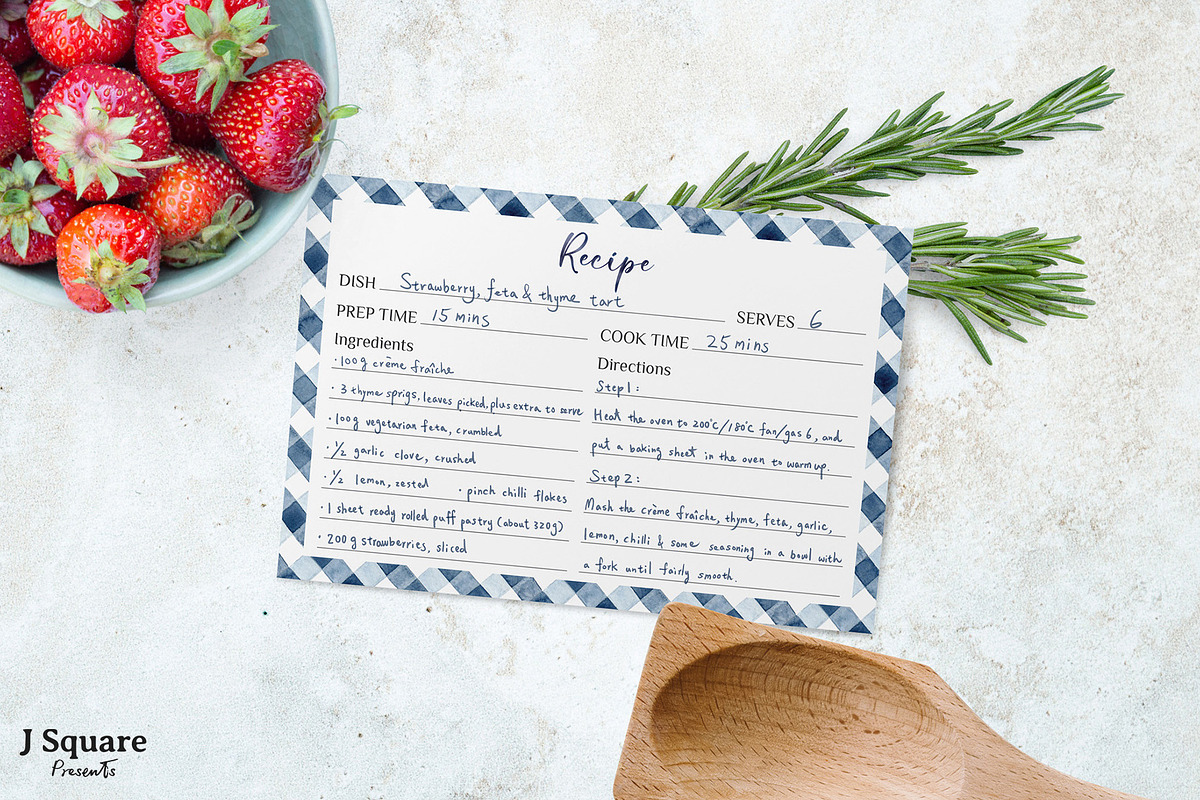 Recipe
DISH Strawberry, feta & thyme tart
SERVES 6
PREP TIME 15 mins
COOK TIME 25 mins
Ingredients
· 100g crème fraîche
· 3 thyme sprigs, leaves picked, plus extra to serve
· 100g vegetarian feta, crumbled
· 1/2 garlic clove, crushed
· 1/2 lemon, zested · pinch chilli flakes
· 1 sheet ready rolled puff pastry (about 320g)
· 200g strawberries, sliced
Directions
Step 1:
Heat the oven to 200°C/180°C fan/gas 6, and
put a baking sheet in the oven to warm up.
Step 2:
Mash the crème fraîche, thyme, feta, garlic,
lemon, chilli & some seasoning in a bowl with
a fork until fairly smooth.
J Square
Presents